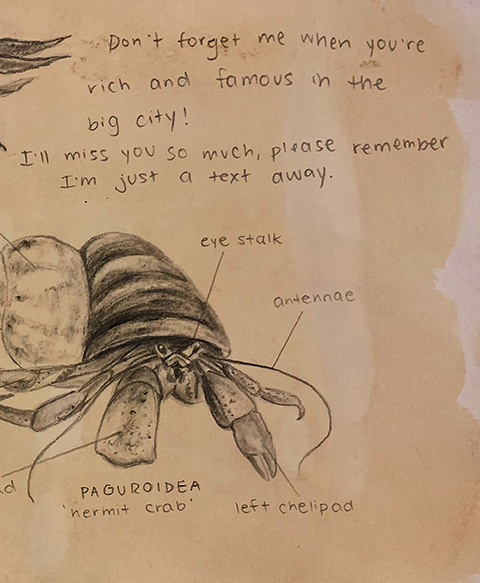 Don't forget me when you're
rich and famous in the
big city!
I'll miss you so much, please remember
I'm just a text away.
eye stalk
antennae
PAGUROIDEA
'hermit crab'
left chelipad